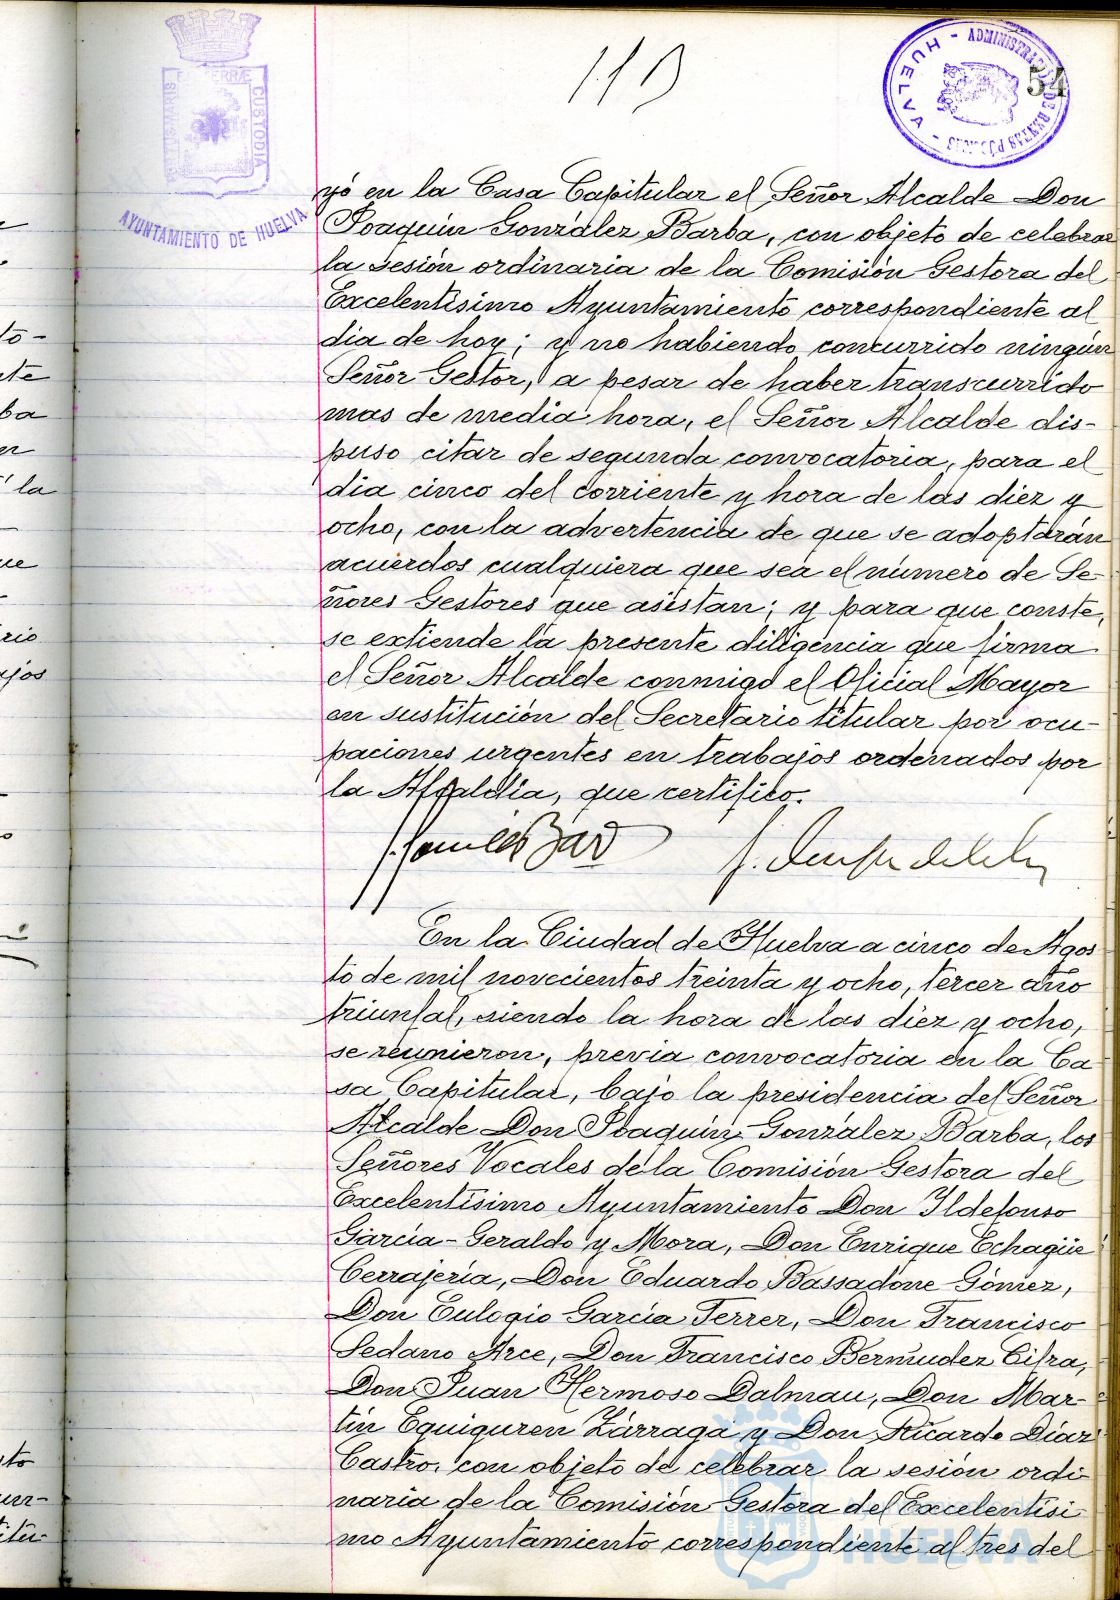 113
54
ADMINISTRACIÓN DE RENTAS PÚBLICAS - HUELVA -
PORTUS MARIS ET TERRÆ CUSTODIA
AYUNTAMIENTO DE HUELVA
yó en la Casa Capitular el Señor Alcalde Don
Joaquín González Barba, con objeto de celebrar
la sesión ordinaria de la Comisión Gestora del
Excelentísimo Ayuntamiento correspondiente al
dia de hoy; y no habiendo concurrido ningún
Señor Gestor, a pesar de haber transcurrido
mas de media hora, el Señor Alcalde dis-
puso citar de segunda convocatoria, para el
dia cinco del corriente y hora de las diez y
ocho, con la advertencia de que se adoptarán
acuerdos cualquiera que sea el número de Se-
ñores Gestores que asistan; y para que conste,
se extiende la presente diligencia que firma
el Señor Alcalde conmigo el Oficial Mayor
en sustitución del Secretario titular por ocu-
paciones urgentes en trabajos ordenados por
la Alcaldía, que certifico.
En la Ciudad de Huelva a cinco de Agos-
to de mil novecientos treinta y ocho, tercer año
triunfal, siendo la hora de las diez y ocho,
se reunieron, previa convocatoria en la Ca-
sa Capitular, bajo la presidencia del Señor
Alcalde Don Joaquín González Barba, los
Señores Vocales de la Comisión Gestora del
Excelentísimo Ayuntamiento Don Ildefonso
García-Geraldo y Mora, Don Enrique Echagüe
Cerrajería, Don Eduardo Bassadone Gómez,
Don Eulogio García Ferrer, Don Francisco
Sedano Arce, Don Francisco Bermudez Cifra,
Don Juan Hermoso Dalmau, Don Mar-
tín Eguiguren Zárraga y Don Ricardo Díaz
Castro, con objeto de celebrar la sesión ordi-
naria de la Comisión Gestora del Excelentísi-
mo Ayuntamiento correspondiente al tres del
HUELVA